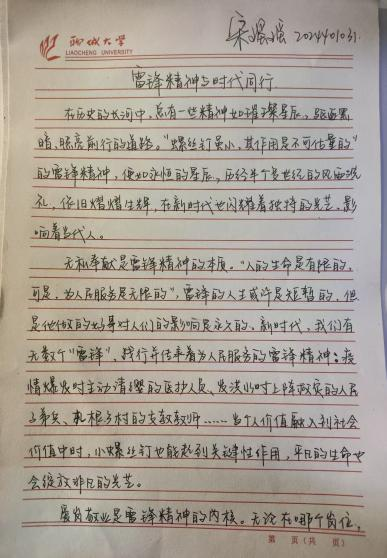 聊城大学
LIAOCHENG UNIVERSITY
2024401031.
雷锋精神与时代同行
在历史的长河中，总有一些精神如璀璨星辰，驱逐黑
暗，照亮前行的道路。“螺丝钉虽小，其作用是不可估量的”
的雷锋精神，便如永恒的星辰，历经半个多世纪的风雨洗
礼，依旧熠熠生辉，在新时代也闪耀着独特的光芒，影
响着当代人。
无私奉献是雷锋精神的本质。“人的生命是有限的，
可是，为人民服务是无限的”，雷锋的人生或许是短暂的，但
是他做的好事对人们的影响是永久的。新时代，我们有
无数个“雷锋”，践行并传承着为人民服务的雷锋精神。疫
情爆发时主动请缨的医护人员、发洪水时上阵救灾的人民
子弟兵、扎根乡村的支教教师……当个人价值融入到社会
价值中时，小螺丝钉也能起到关键性作用，平凡的生命也
会绽放非凡的光芒。
爱岗敬业是雷锋精神的内核。无论在哪个岗位，
第 页（共 页）